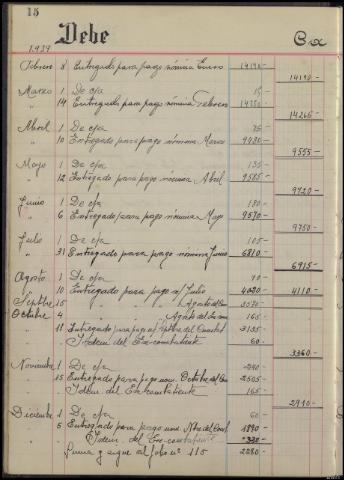 15
Debe
Ca
1.939
Febrero 8 Entregado para pago nómina Enero 14190-
14190-
Marzo 1 De cja 15-
" 14 Entregado para pago nómina Febrero 14250-
14265-
Abril 1 De cja 75-
" 10 Entregado para pago nómina Marzo 9480-
9555-
Mayo 1 De cja 135-
" 12 Entregado para pago nómina Abril 9585-
9720-
Junio 1 De cja 180-
" 6 Entregado para pago nómina Mayo 9570-
9750-
Julio 1 De cja 105-
" 31 Entregado para pago nómina Junio 6810-
6915-
Agosto 1 De cja 90-
" 10 Entregado para pago n/ Julio 4020- 4110-
Septbre 15 " " " Agosto del
Octubre 4 " " Agosto del 165-
" 11 Entregado para pago n/ Septbre del 3135-
" Idem del Ex-combatiente 60-
3360-
Noviembre 1 De cja 240-
" 15 Entregado para pago nom. Octubre del 2505-
" Idem del Ex-combatiente 165-
2910-
Diciembre 1 De cja 60-
" 5 Entregado para pago nom. Nbre del 1890-
" Idem del Ex-combatiente 330-
Suma y sigue al folio nº 115 2280-